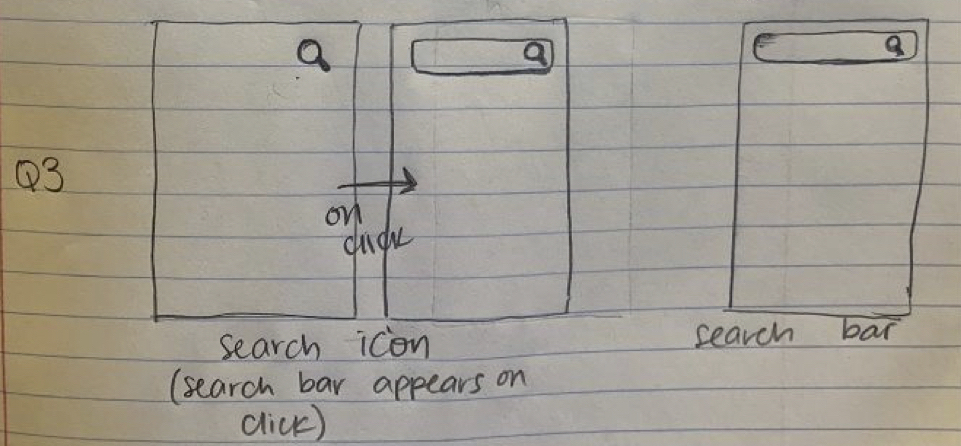 Q3
on
click
search icon
(search bar appears on
click)
search bar